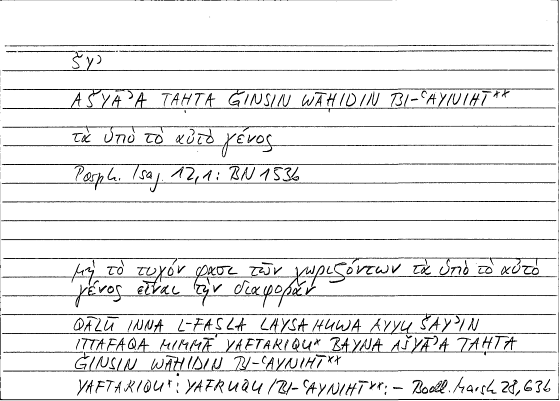 ŠYʾ
AŠYĀʾA TAḤTA ǦINSIN WĀḤIDIN BI-ʿAYNIHĪ**
τὰ ὑπὸ τὸ αὐτὸ γένος
Porph. Isag. 12,1: BN 153b
μὴ τὸ τυχόν φασι τῶν χωριζόντων τὰ ὑπὸ τὸ αὐτὸ
γένος εἶναι τὴν διαφοράν
QĀLŪ INNA L-FAṢLA LAYSA HUWA AYYU ŠAYʾIN
ITTAFAQA MIMMĀ YAFTARIQU* BAYNA AŠYĀʾA TAḤTA
ǦINSIN WĀḤIDIN BI-ʿAYNIHĪ**
YAFTARIQU*: YAFRUQU / BI-ʿAYNIHĪ**: – Bodl. Marsh 28,63b